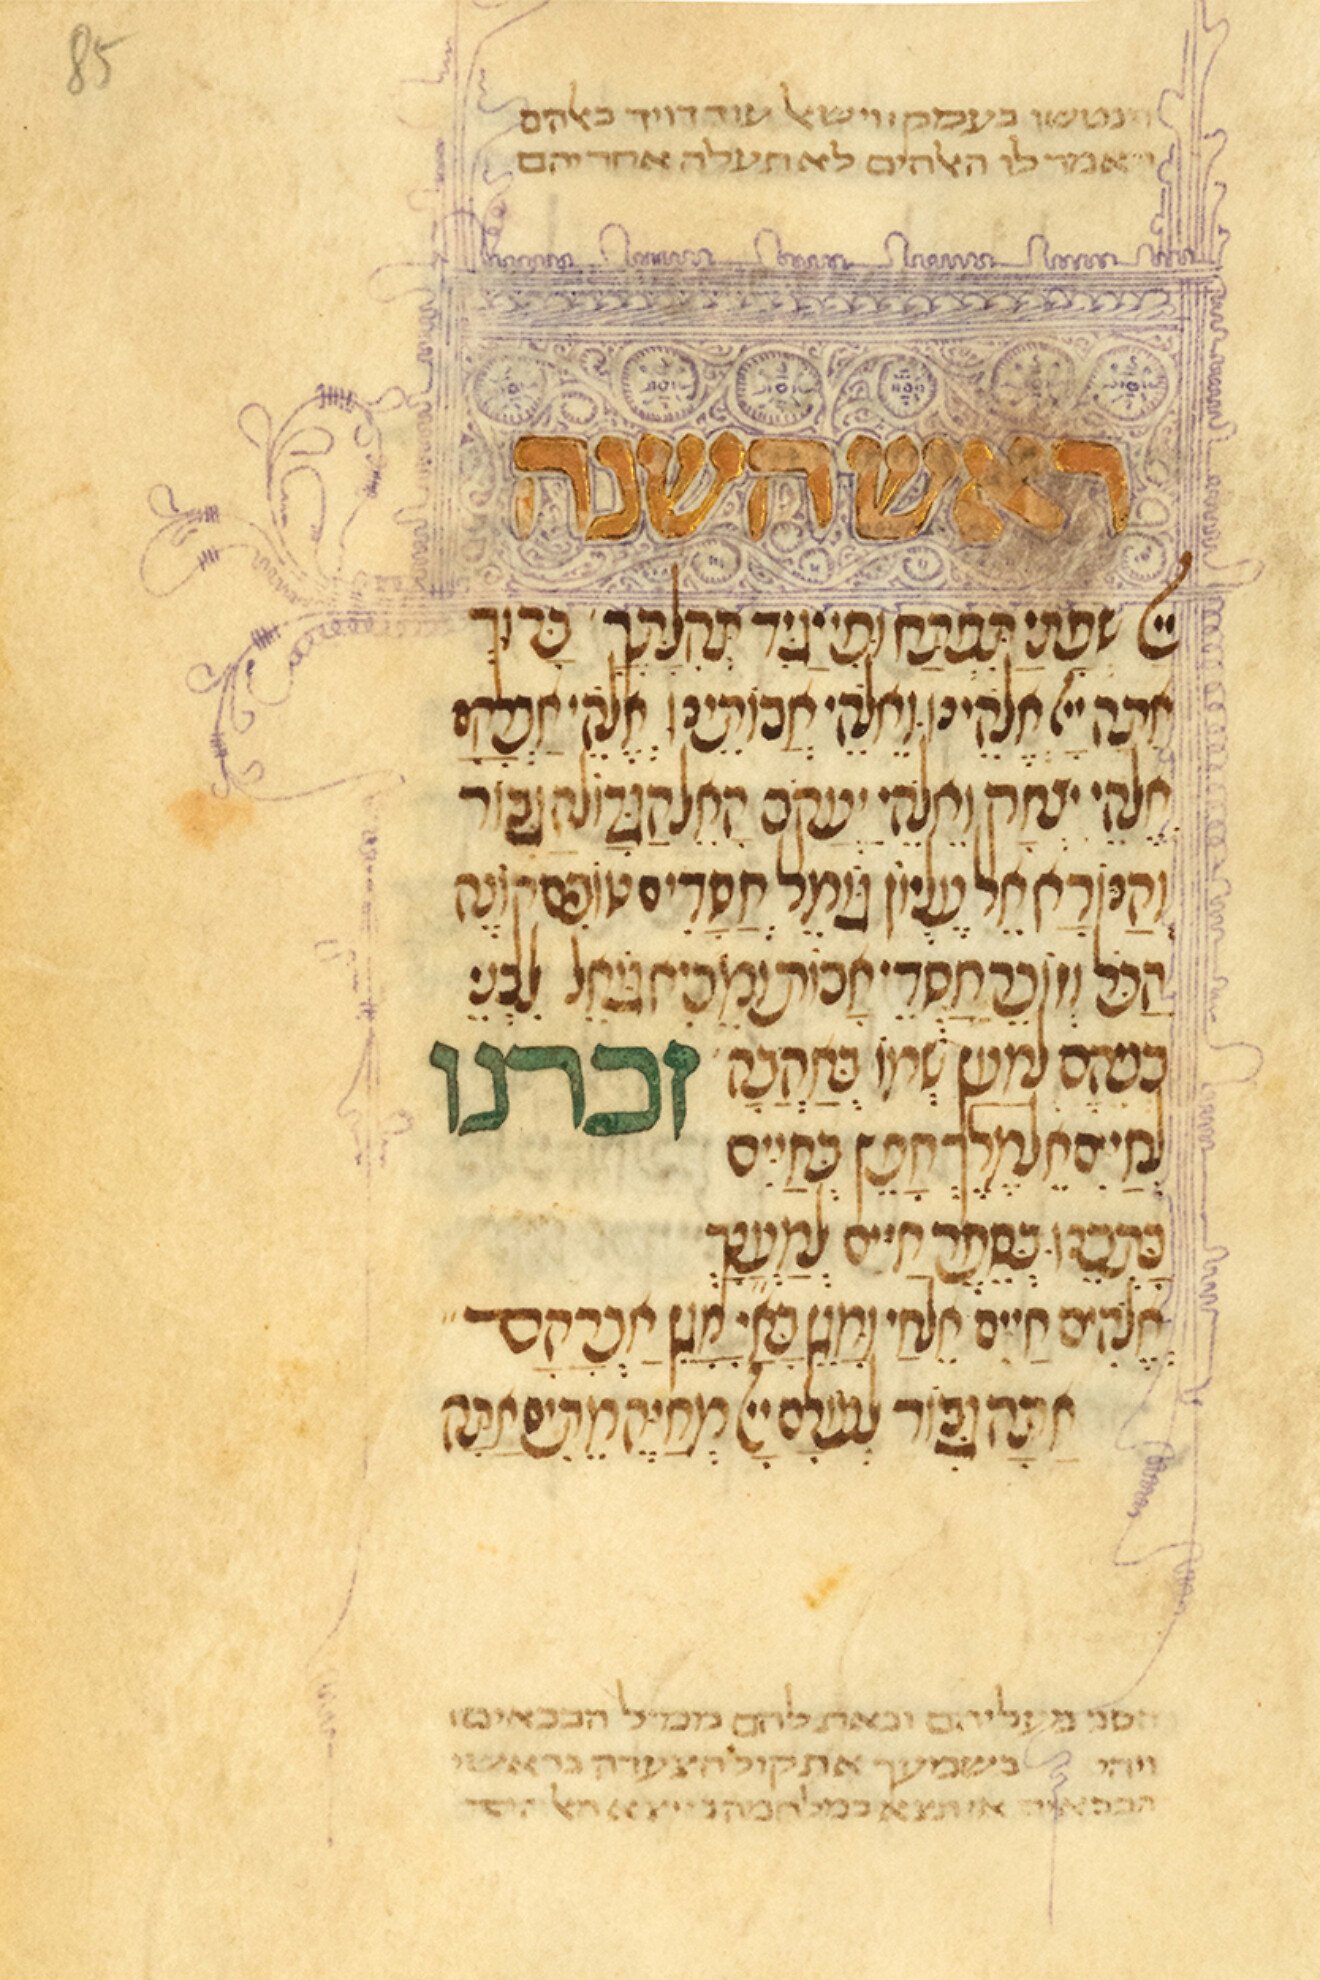 85
בעמק: וישאל עוד דויד באלהם
ויאמר לו האלהים לא תעלה אחריהם
ראש השנה
יי שפתי תפתח ופי יגיד תהלתך ברוך
אתה יי אלהינו ואלהי אבותינו אלהי אברהם
אלהי יצחק ואלהי יעקב האל הגדול הגבור
והנורא אל עליון גומל חסדים טובים קונה
הכל וזוכר חסדי אבות ומביא גואל לבני
בניהם למען שמו באהבה זכרנו
לחיים אל מלך חפץ בחיים
כתבנו בספר חיים למענך
אלהים חיים אל חי ומגן בא״י מגן אברהם
אתה גבור לעולם יי מחיה מתים אתה
הסב מעליהם ובאת להם ממול הבכאים:
ויהי כשמעך את קול הצעדה בראשי
הבכאים אז תצא במלחמה כי יצא האל